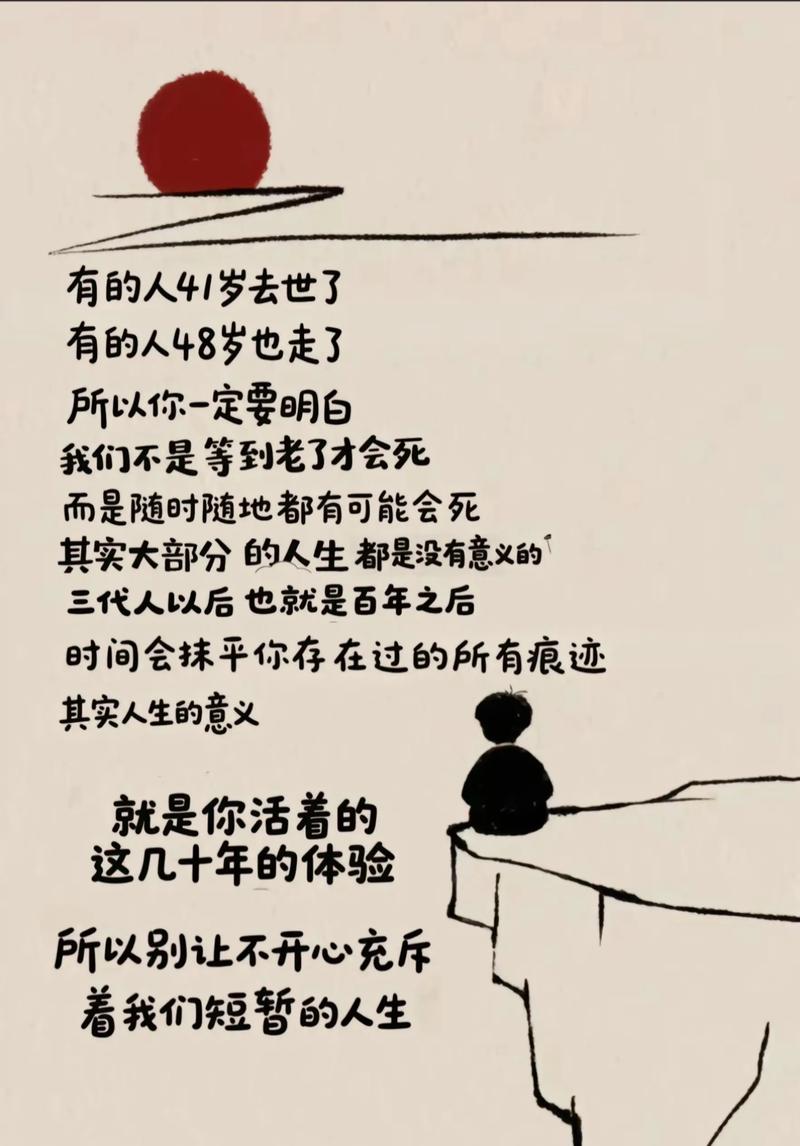 有的人41岁去世了
有的人48岁也走了
所以你一定要明白
我们不是等到老了才会死
而是随时随地都有可能会死
其实大部分的人生都是没有意义的
三代人以后也就是百年之后
时间会抹平你存在过的所有痕迹
其实人生的意义
就是你活着的
这几十年的体验
所以别让不开心充斥
着我们短暂的人生